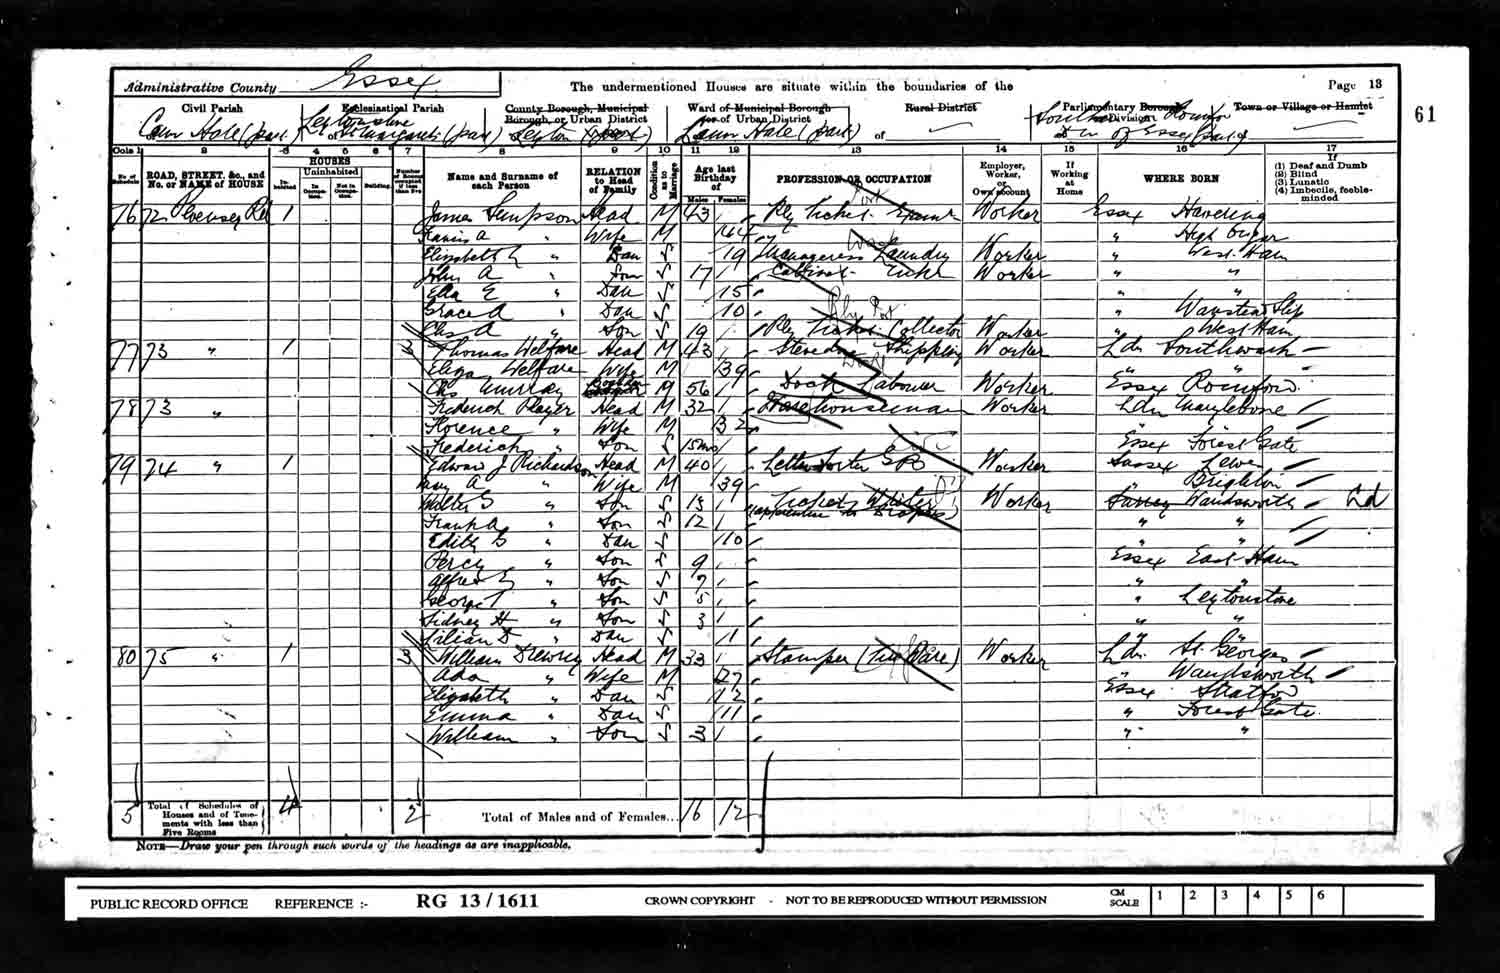 Administrative County Essex
The undermentioned Houses are situate within the boundaries of the
Page 13
Civil Parish
Ecclesiastical Parish
County Borough, Municipal Borough, or Urban District
Ward of Municipal Borough or of Urban District
Rural District
Parliamentary Borough or Division
Town or Village or Hamlet
Cann Hall (part) Leytonstone St Margarets (part) Leyton Cann Hall (part) of Southern Romford Div of Essex (part of)
61
Cols 1 2 3 4 5 6 7 8 9 10 11 12 13 14 15 16 17
No. of Schedule
ROAD, STREET, &c., and No. or NAME of HOUSE
HOUSES
Inhabited
Uninhabited
In Occupation.
Not in Occupation.
Building.
Number of Rooms occupied if less than five
Name and Surname of each Person
RELATION to Head of Family
Condition as to Marriage
Age last Birthday of
Males Females
PROFESSION OR OCCUPATION
Employer, Worker, or Own account
If Working at Home
WHERE BORN
If
(1) Deaf and Dumb
(2) Blind
(3) Lunatic
(4) Imbecile, feeble-minded
76 72 Pevensey Rd 1 James Simpson Head M 43 Rly Ticket Examr Worker Essex Havering
Francis A " Wife M 44 " High Ongar
Elizabeth " Dau S 19 Manageress Laundry Worker " West Ham
John A " Son S 17 Worker " "
Ella E " Dau S 15 " "
Grace A " Dau S 10 " Wanstead Slip
Chs A " Son S 19 Rly Ticket Collector Worker " West Ham
77 73 " 1 3 Thomas Welfare Head M 43 Stevedore Shipping Worker Ldn Southwark
Eliza Welfare Wife M 39 "
Chs Murray Boarder M 56 Dock Labourer Worker Essex Romford
78 73 " Frederick Player Head M 32 Warehouseman Worker Ldn Marylebone
Florence " Wife M 32
Frederick " Son S 15mo Essex Forest Gate
79 74 " 1 Edward J Richardson Head M 40 Letter Sorter GPO Worker Sussex Lewes
A " Wife M 39 " Brighton
Walter G " Son S 15 Ticket Writer (apprentice to Drapers) Worker Surrey Wandsworth Ld
Frank A " Son S 12 " "
Edith G " Dau S 10 " "
Percy " Son S 9 Essex East Ham
Alfred E " Son S 7 " "
George T " Son S 5 " Leytonstone
Sidney H " Son S 3 " "
Lilian D " Dau S 1 " "
80 75 " 1 3 William Drewry Head M 33 Stamper (Tin Ware) Worker Ldn St Georges
Ada " Wife M 27 " Wandsworth
Elizabeth " Dau S 12 Essex Stratford
Emma " Dau S 11 " Forest Gate
William " Son S 3 " "
5 Total of Schedules of Houses and of Tenements with less than Five Rooms 4 2 Total of Males and of Females... 16 12
NOTE—Draw your pen through such words of the headings as are inapplicable.
PUBLIC RECORD OFFICE REFERENCE :- RG 13 / 1611 CROWN COPYRIGHT - NOT TO BE REPRODUCED WITHOUT PERMISSION CM SCALE 1 2 3 4 5 6